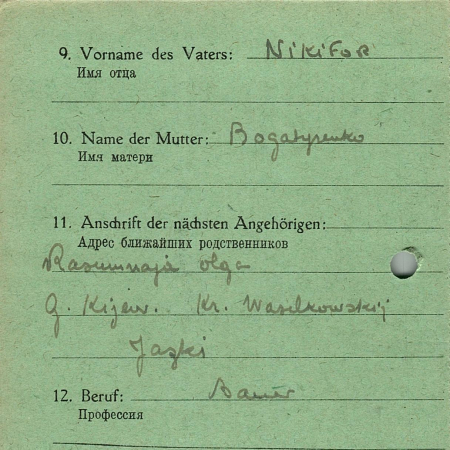 9. Vorname des Vaters: Nikifor
Имя отца
10. Name der Mutter: Bogatyrenko
Имя матери
11. Anschrift der nächsten Angehörigen:
Адрес ближайших родственников
Rasumnaja Olga
G. Kijew. Kr. Wasilkowskij
Jazki
12. Beruf: Bauer
Профессия